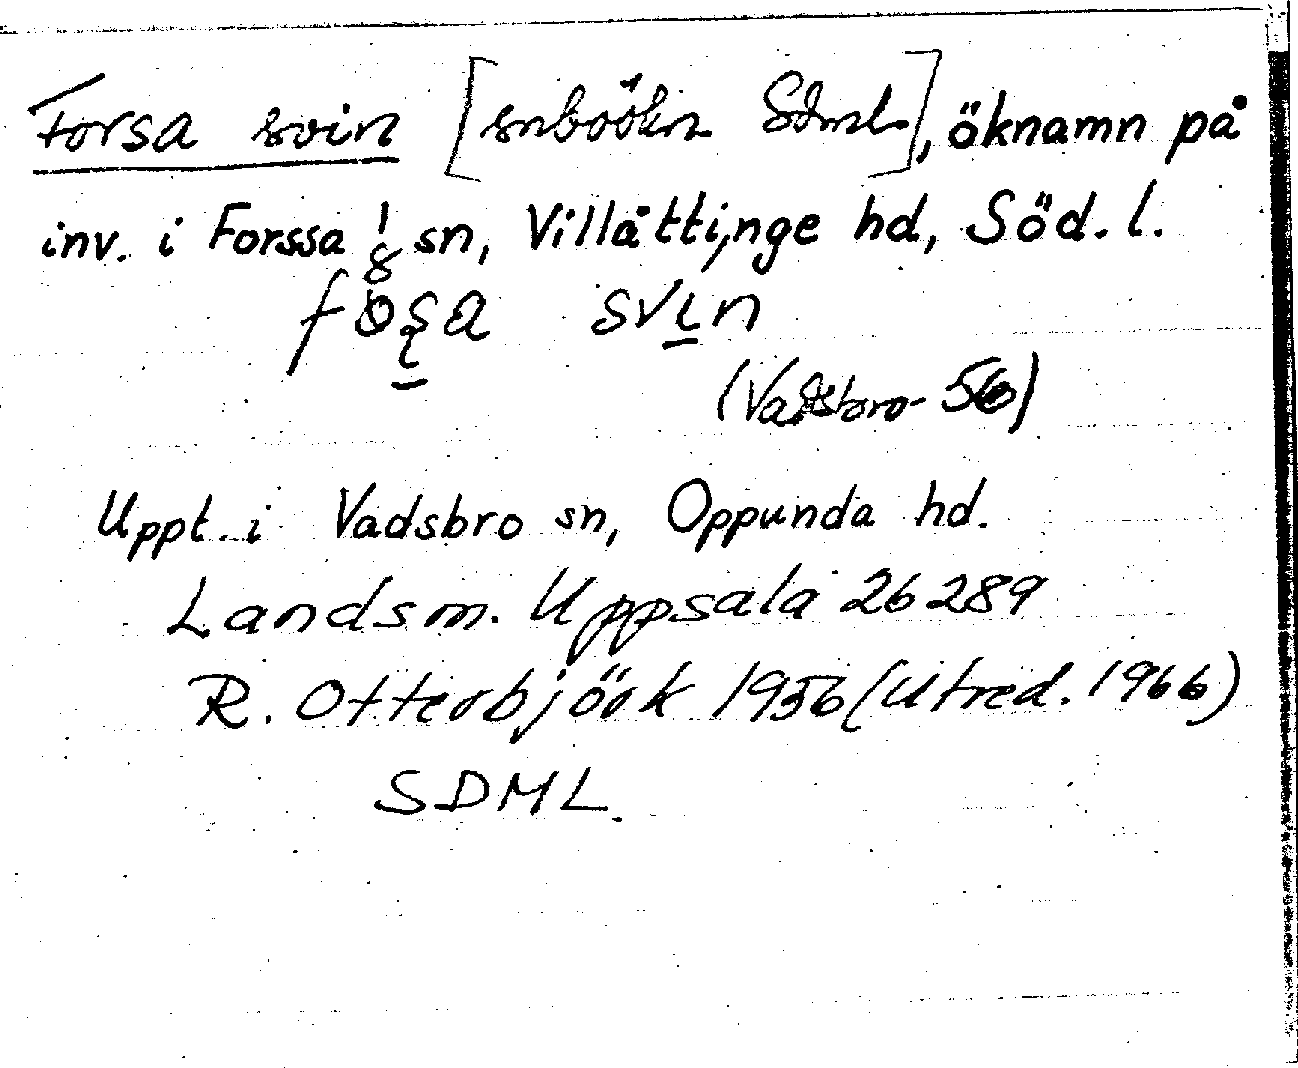 Forsa svin [snboökn Sdml.], öknamn på
inv. i Forssa sn, Villåttinge hd, Söd. l.
svin
(Vadsbro 56)
Uppt. i Vadsbro sn, Oppunda hd.
Landsm. Uppsala 26289
R. Otterbjörk 1956 (Utred. 1966)
SDML